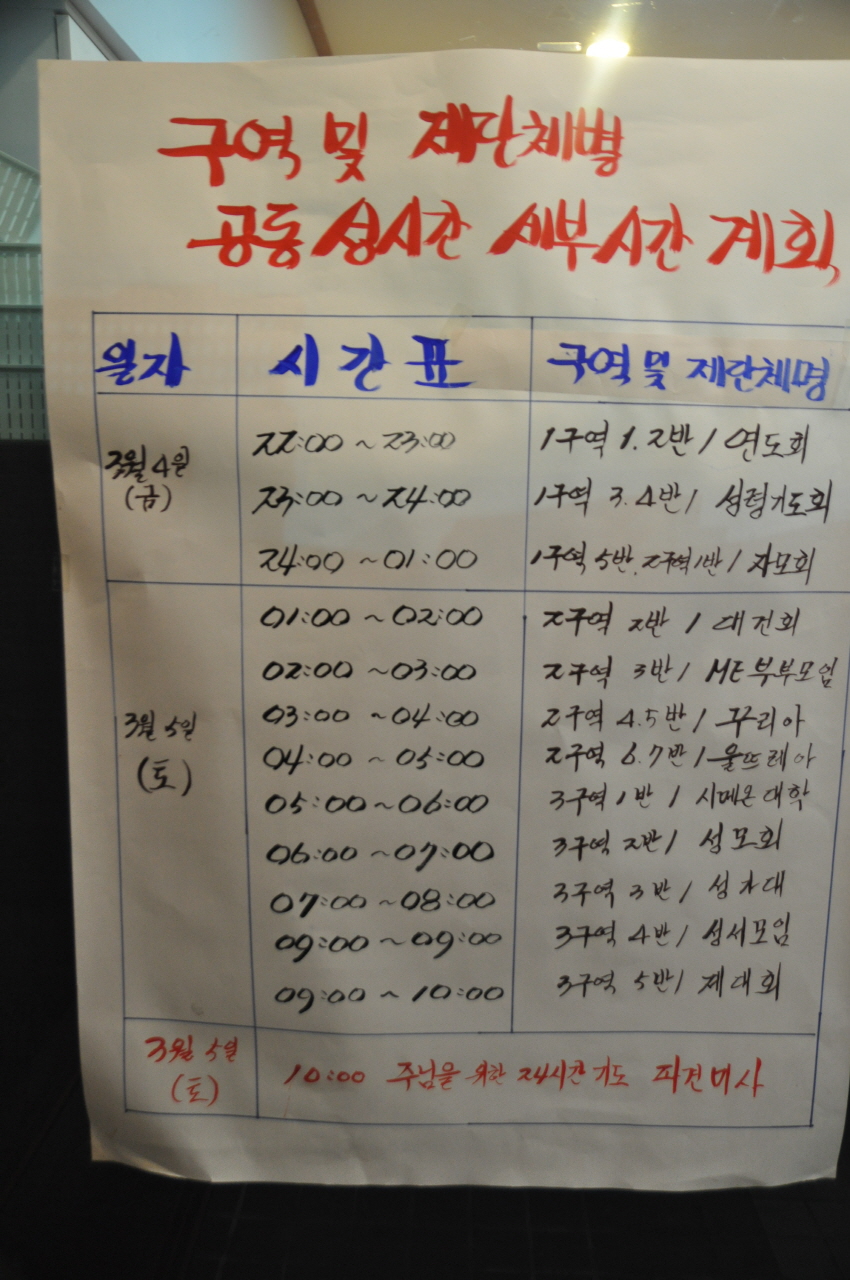 구역 및 제단체별
공동 성시간 세부시간 계획
일자 시간표 구역 및 제단체명
3월 4일 (금)
22:00 ~ 23:00 1구역 1.2반 / 연도회
23:00 ~ 24:00 1구역 3.4반 / 성령기도회
24:00 ~ 01:00 1구역 5반. 2구역 1반 / 자모회
3월 5일 (토)
01:00 ~ 02:00 2구역 2반 / 대건회
02:00 ~ 03:00 2구역 3반 / ME부부모임
03:00 ~ 04:00 2구역 4.5반 / 꾸리아
04:00 ~ 05:00 2구역 6.7반 / 울뜨레아
05:00 ~ 06:00 3구역 1반 / 시메온대학
06:00 ~ 07:00 3구역 2반 / 성모회
07:00 ~ 08:00 3구역 3반 / 성가대
09:00 ~ 09:00 3구역 4반 / 성서모임
09:00 ~ 10:00 3구역 5반 / 제대회
3월 5일 (토)
10:00 주님을 위한 24시간 기도 파견미사